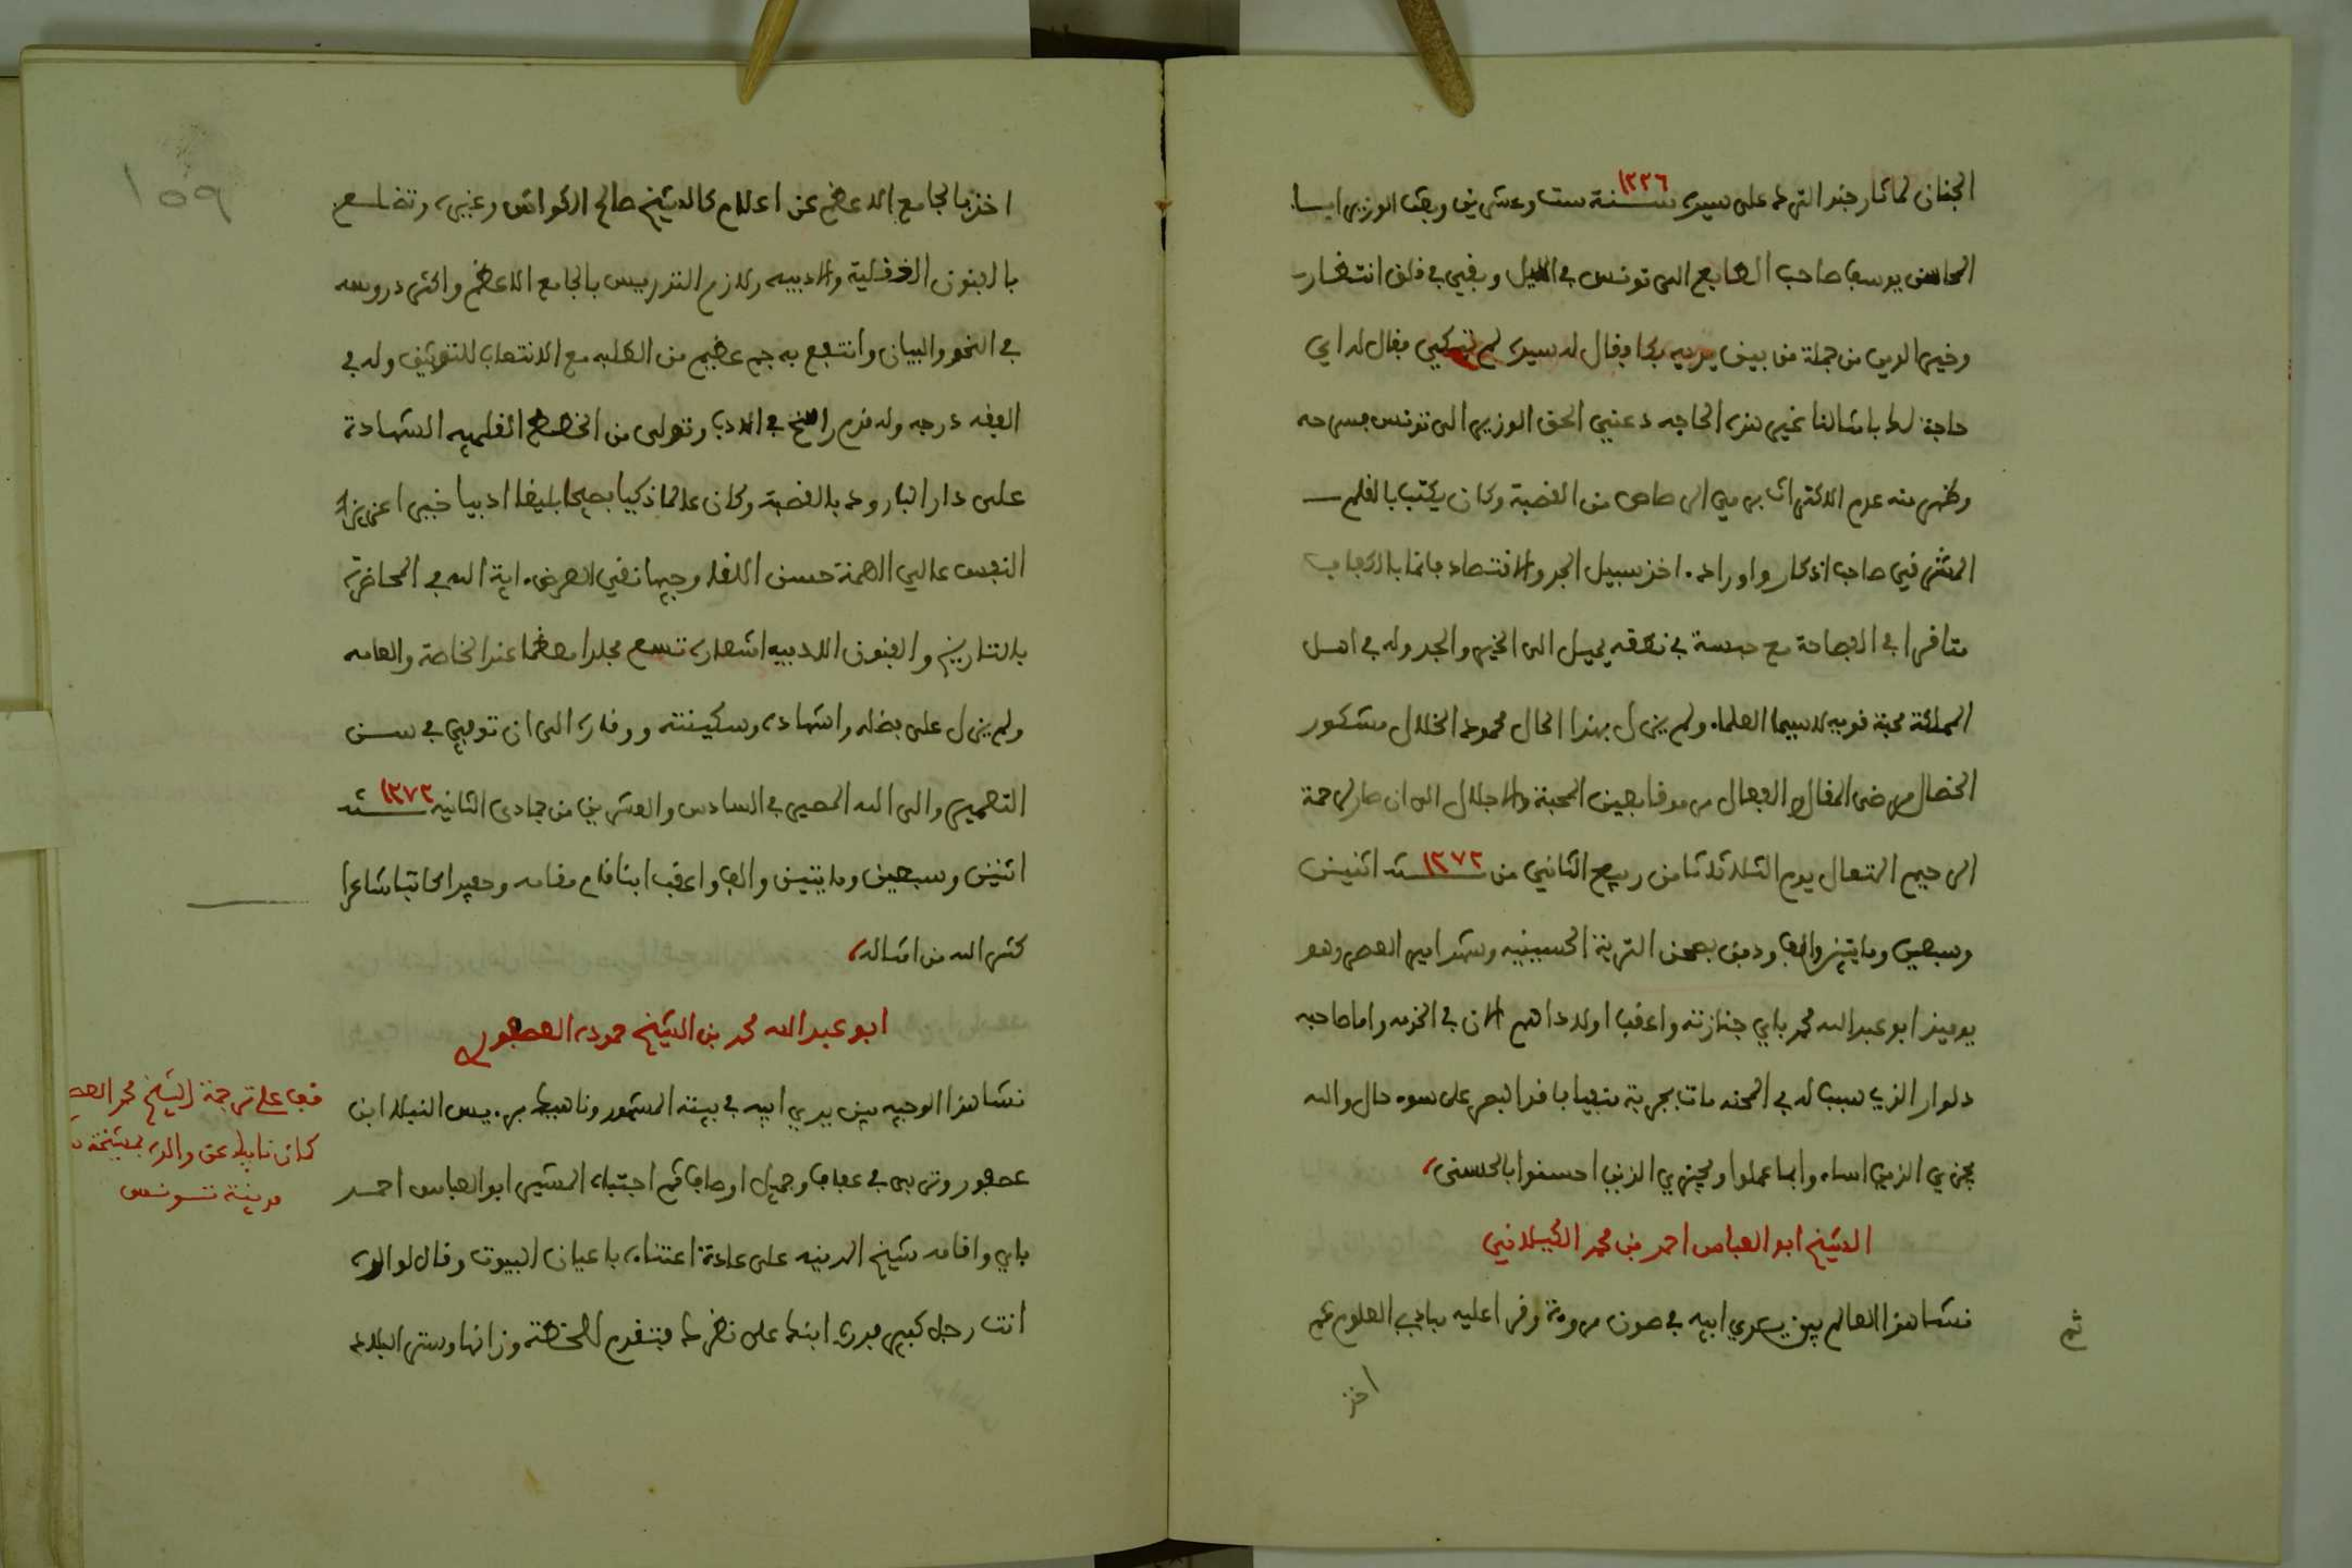 الجنان لما ثار جند الترك على سيده سنة ١٢٢٦ ست وعشرين وبعث الوزير ابا
المحاسن يوسف صاحب الطابع الى تونس في الليل وبقي في قلق انتظار
وخير الدين من جملة من بين يديه بكا وقال له سيده لم تبكي فقال له اي
حاجة لك يا باشا لنا غير هذه الحاجه دعني الحق الوزير الى تونس فسرحه
وظهر منه عدم الاكتراث برمي الرصاص من القصبة وكان يكتب بالقلم
المشرقي صاحب اذكار واوراد اخذ سبيل الجد والاقتصاد قانعا بالكفاف
متاخرا في الفصاحة مع حبسة في نطقه يميل الى الخير والجد وله في اهل
المملكة محبة قويه لا سيما العلماء ولم يزل بهذا الحال محمود الخلال مشكور
الخصال مرضي المقال والفعال مرموقا بعين المحبة والاجلال الى ان صار لرحمة
الرحيم المتعال يوم الثلاثا ثامن ربيع الثاني من سنة ١٢٧٢ اثنين
وسبعين ومايتين والف ودفن بصحن التربة الحسينيه وشهد امير العصر وهو
يوميذ ابو عبد الله محمد باي جنازته واعقب اولادا هم الان في الخدمه واما صاحبه
دلوار الذي سبب له في المحنه مات بجربة منفيا فاقد البصر على سوء حال والله
يجزي الذين اساءوا بما عملوا ويجزي الذين احسنوا بالحسنى
الشيخ ابو العباس احمد بن محمد الكيلاني
نشا هذا العالم بين يدي ابيه في صون مروءة وقرا عليه مبادي العلوم ثم
ثم
اخذ
١٥٩
اخذ بالجامع الاعظم عن اعلام كالشيخ صالح الكواش وغيره وتضلع
بالفنون العقلية والادبيه ولازم التدريس بالجامع الاعظم واكثر دروسه
في النحو والبيان وانتفع به جم عظيم من الطلبه مع الانتصاب للتوثيق وله في
الفقه درجه وله قدم راسخ في الادب وتولى من الخطط العلميه الشهادة
على دار البارود بالقصبة وكان عالما ذكيا فصيحا بليغا اديبا خبيرا عزيز
النفس عالي الهمة حسن اللقا وجيها نقي العرض اية الله في المحاضرة
بالتاريخ والفنون الادبيه اشعاره تسع مجلدا معظما عند الخاصة والعامه
ولم يزل على فضله واشتهاده وسكينته ووقاره الى ان توفي في سن
التعمير والى الله المصير في السادس والعشرين من جمادى الثانيه سنة ١٢٧٢
اثنين وسبعين ومايتين والف واعقب ابنا قام مقامه وحفيدا كاتبا شاعرا
كثر الله من امثاله
ابو عبد الله محمد بن الشيخ حموده العصفوري
نشا هذا الوجيه بين يدي ابيه في بيته المشهور وناهيك بـ النبلاء ابن
عصفور وتربى في عفاف وجميل اوصاف ثم اجتباه المشير ابو العباس احمد
باي واقامه شيخ المدينه على عادة اعتناه باعيان البيوت وقال لوالده
انت رجل كبير درب ابنك على نظرك فتقدم للخطة وزانها وستر البلاد
قف على ترجمة الشيخ محمد العصـ
كان نايبا عن والده بمشيخة
مدينة تونس